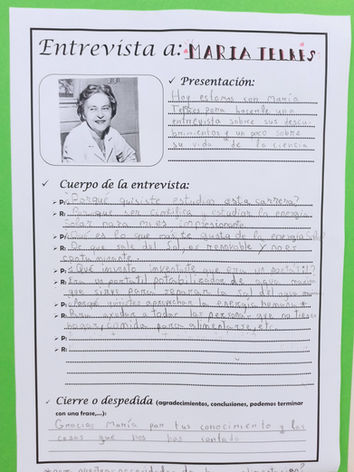 Entrevista a: MARIA TELKES
✓ Presentación:
Hoy estamos con María
Telkes para hacerle una
entrevista sobre sus descu-
brimientos y un poco sobre
su vida de la ciencia
✓ Cuerpo de la entrevista:
P: ¿Porqué quisiste estudiar esta carrera?
R: Porque ser científica y estudiar la energía
solar para mi es impresionante.
P: ¿Qué es lo que más te gusta de la energía solar?
R: De que sale del Sol, es renovable y no es
contaminante.
P: ¿Qué invento inventaste que era un portátil?
R: Era un portatil potabilizador de agua, 
que sirve para separar la sal del agua
P: ¿Porqué quisistes aprovechar la energía
R: Para ayudar a todas las personas que no tienen
P: hogar, comida para alimentarse, etc.
R:
P:
R:
✓ Cierre o despedida (agradecimientos, conclusiones, podemos terminar
con una frase,...):
Gracias María por tus conocimiento y las
cosas que nos has contado.